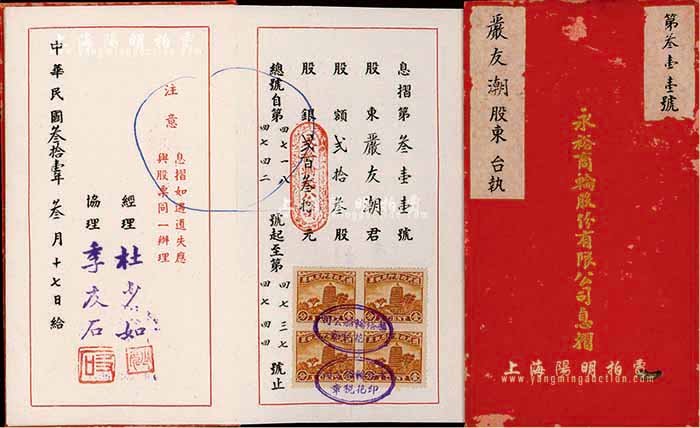 第叁壹壹號
嚴友潮股東台执
永裕商輪股份有限公司息摺
息摺第叁壹壹號
股東嚴友潮君
股額弍拾叁股
股銀弍百叁拾元
總號自第
四七一八
四七四二
號起至第
四七三七
四七四四
號止
印花稅章
注意
息摺如遇遺失應
與股票同一辦理
經理
協理
季友石
中華民國叁拾壹年叁月十七日給
上海陽明拍賣
www.yangmingauction.com
上海陽明拍賣
www.yangmingauction.com
上海陽明拍賣
www.yangmingauction.com